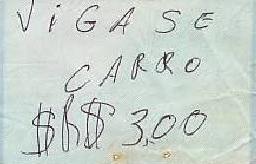 ViGASE
CARRO
$R$ 3,00